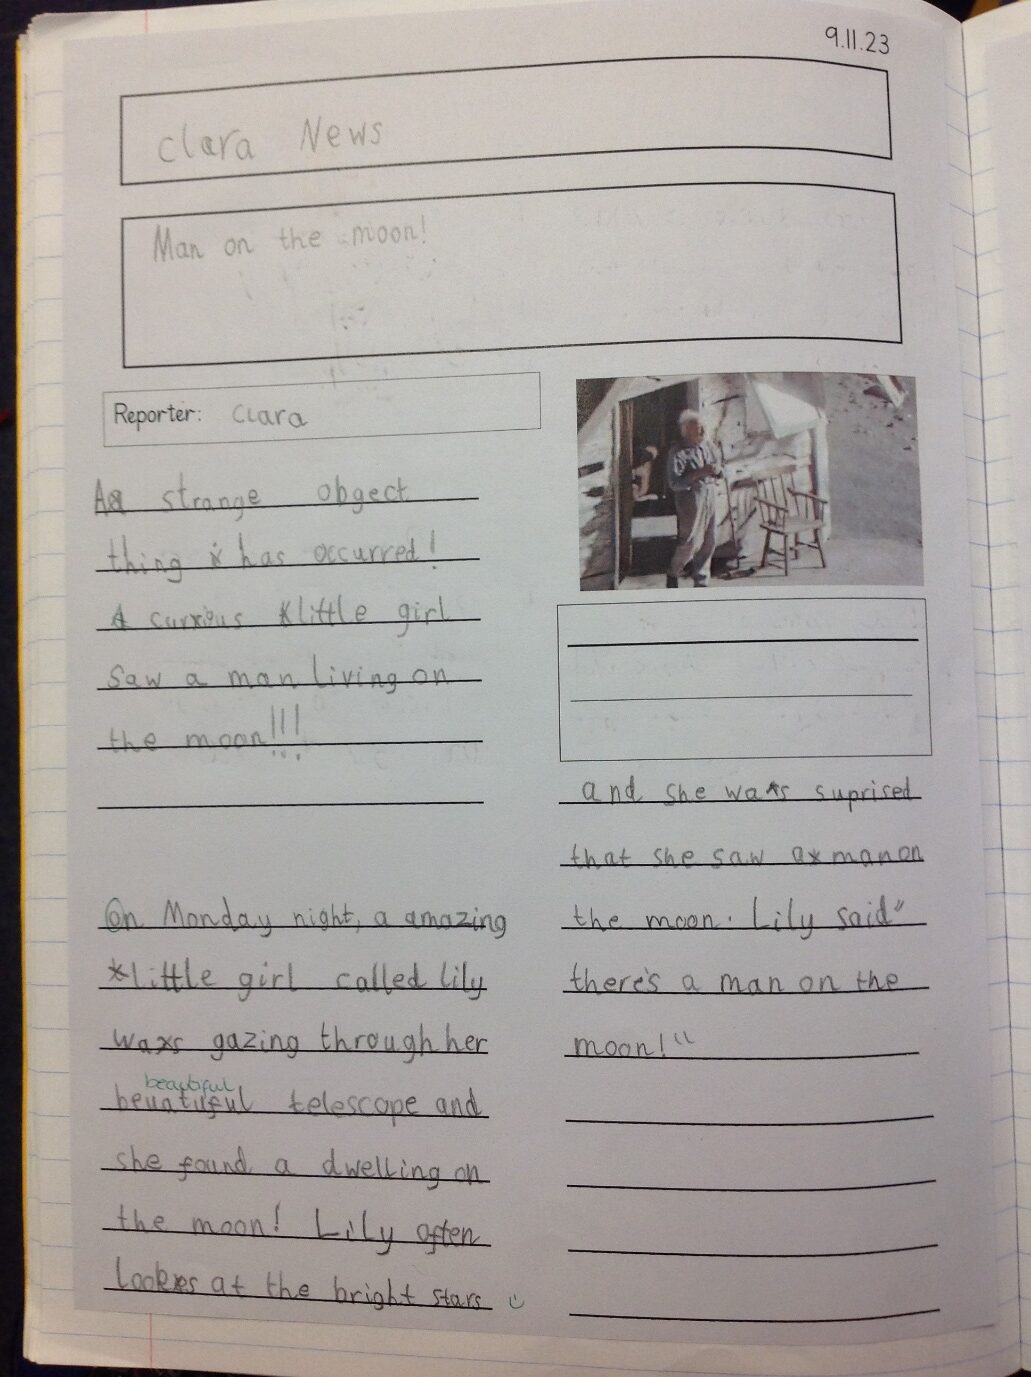 9.11.23
Clara News
Man on the moon!
Reporter: Clara
A strange obgect
thing has occurred!
A curious little girl
saw a man living on
the moon!!!
On Monday night, a amazing
little girl called lily
was gazing through her
beautiful
beuatuful telescope and
she found a dwelling on
the moon! Lily often
lookes at the bright stars
and she was suprised
that she saw a man on
the moon. Lily said"
there's a man on the
moon!"